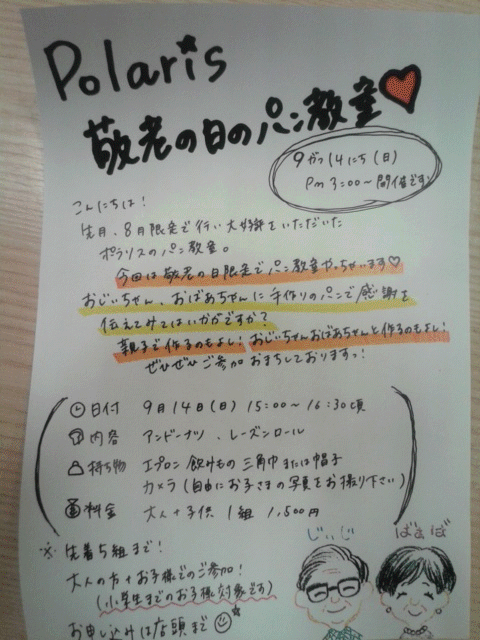 Polaris
敬老の日のパン教室
9がつ14にち(日)
Pm 3:00〜開催です
こんにちは!
先月、8月限定で行い大好評をいただいた
ポラリスのパン教室。
今回は敬老の日限定でパン教室やっちゃいます♡
おじいちゃん、おばあちゃんに手作りのパンで感謝を
伝えてみてはいかがですか?
親子で作るのもよし!おじいちゃんおばあちゃんと作るのもよし!
ぜひぜひご参加おまちしておりますっ!
日付 9月14日(日) 15:00〜16:30頃
内容 アンドーナツ、レーズンロール
持ち物 エプロン 飲みもの 三角巾または帽子
カメラ(自由にお子さまの写真をお撮り下さい)
料金 大人+子供 1組 1,500円
※先着5組まで!
大人の方+お子様でのご参加!
(小学生までのお子様対象です)
お申し込みは店頭まで
じぃじ
ばぁば